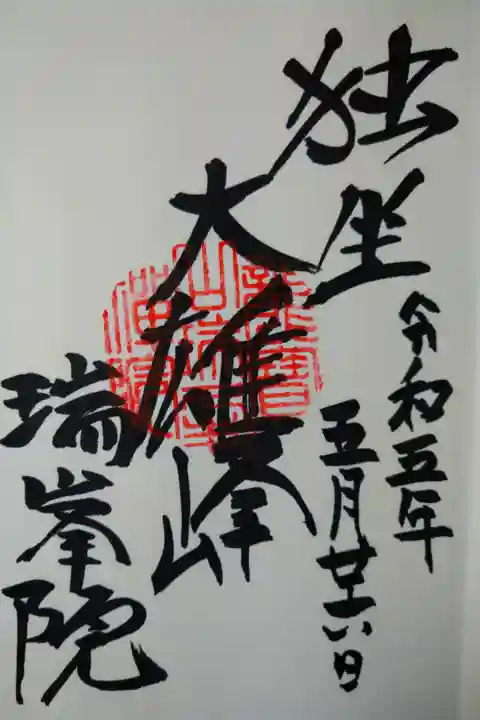 独坐
大雄峰
令和五年
五月廿六日
瑞峯院